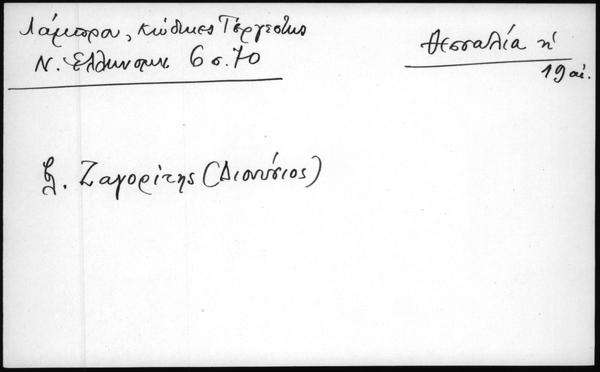 Λάμπρου, Κώδικες Τεργέστης
Ν. Ελληνομν. 6 σ. 70
Θεσσαλία
19 αἰ.
βλ. Ζαγορίτης (Διονύσιος)